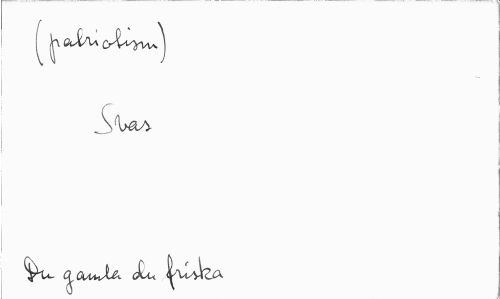 (patriotism)
Svas
Du gamla du friska